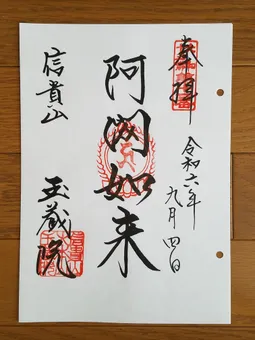 奉拝
令和六年
九月四日
阿閦如来
信貴山
玉蔵院